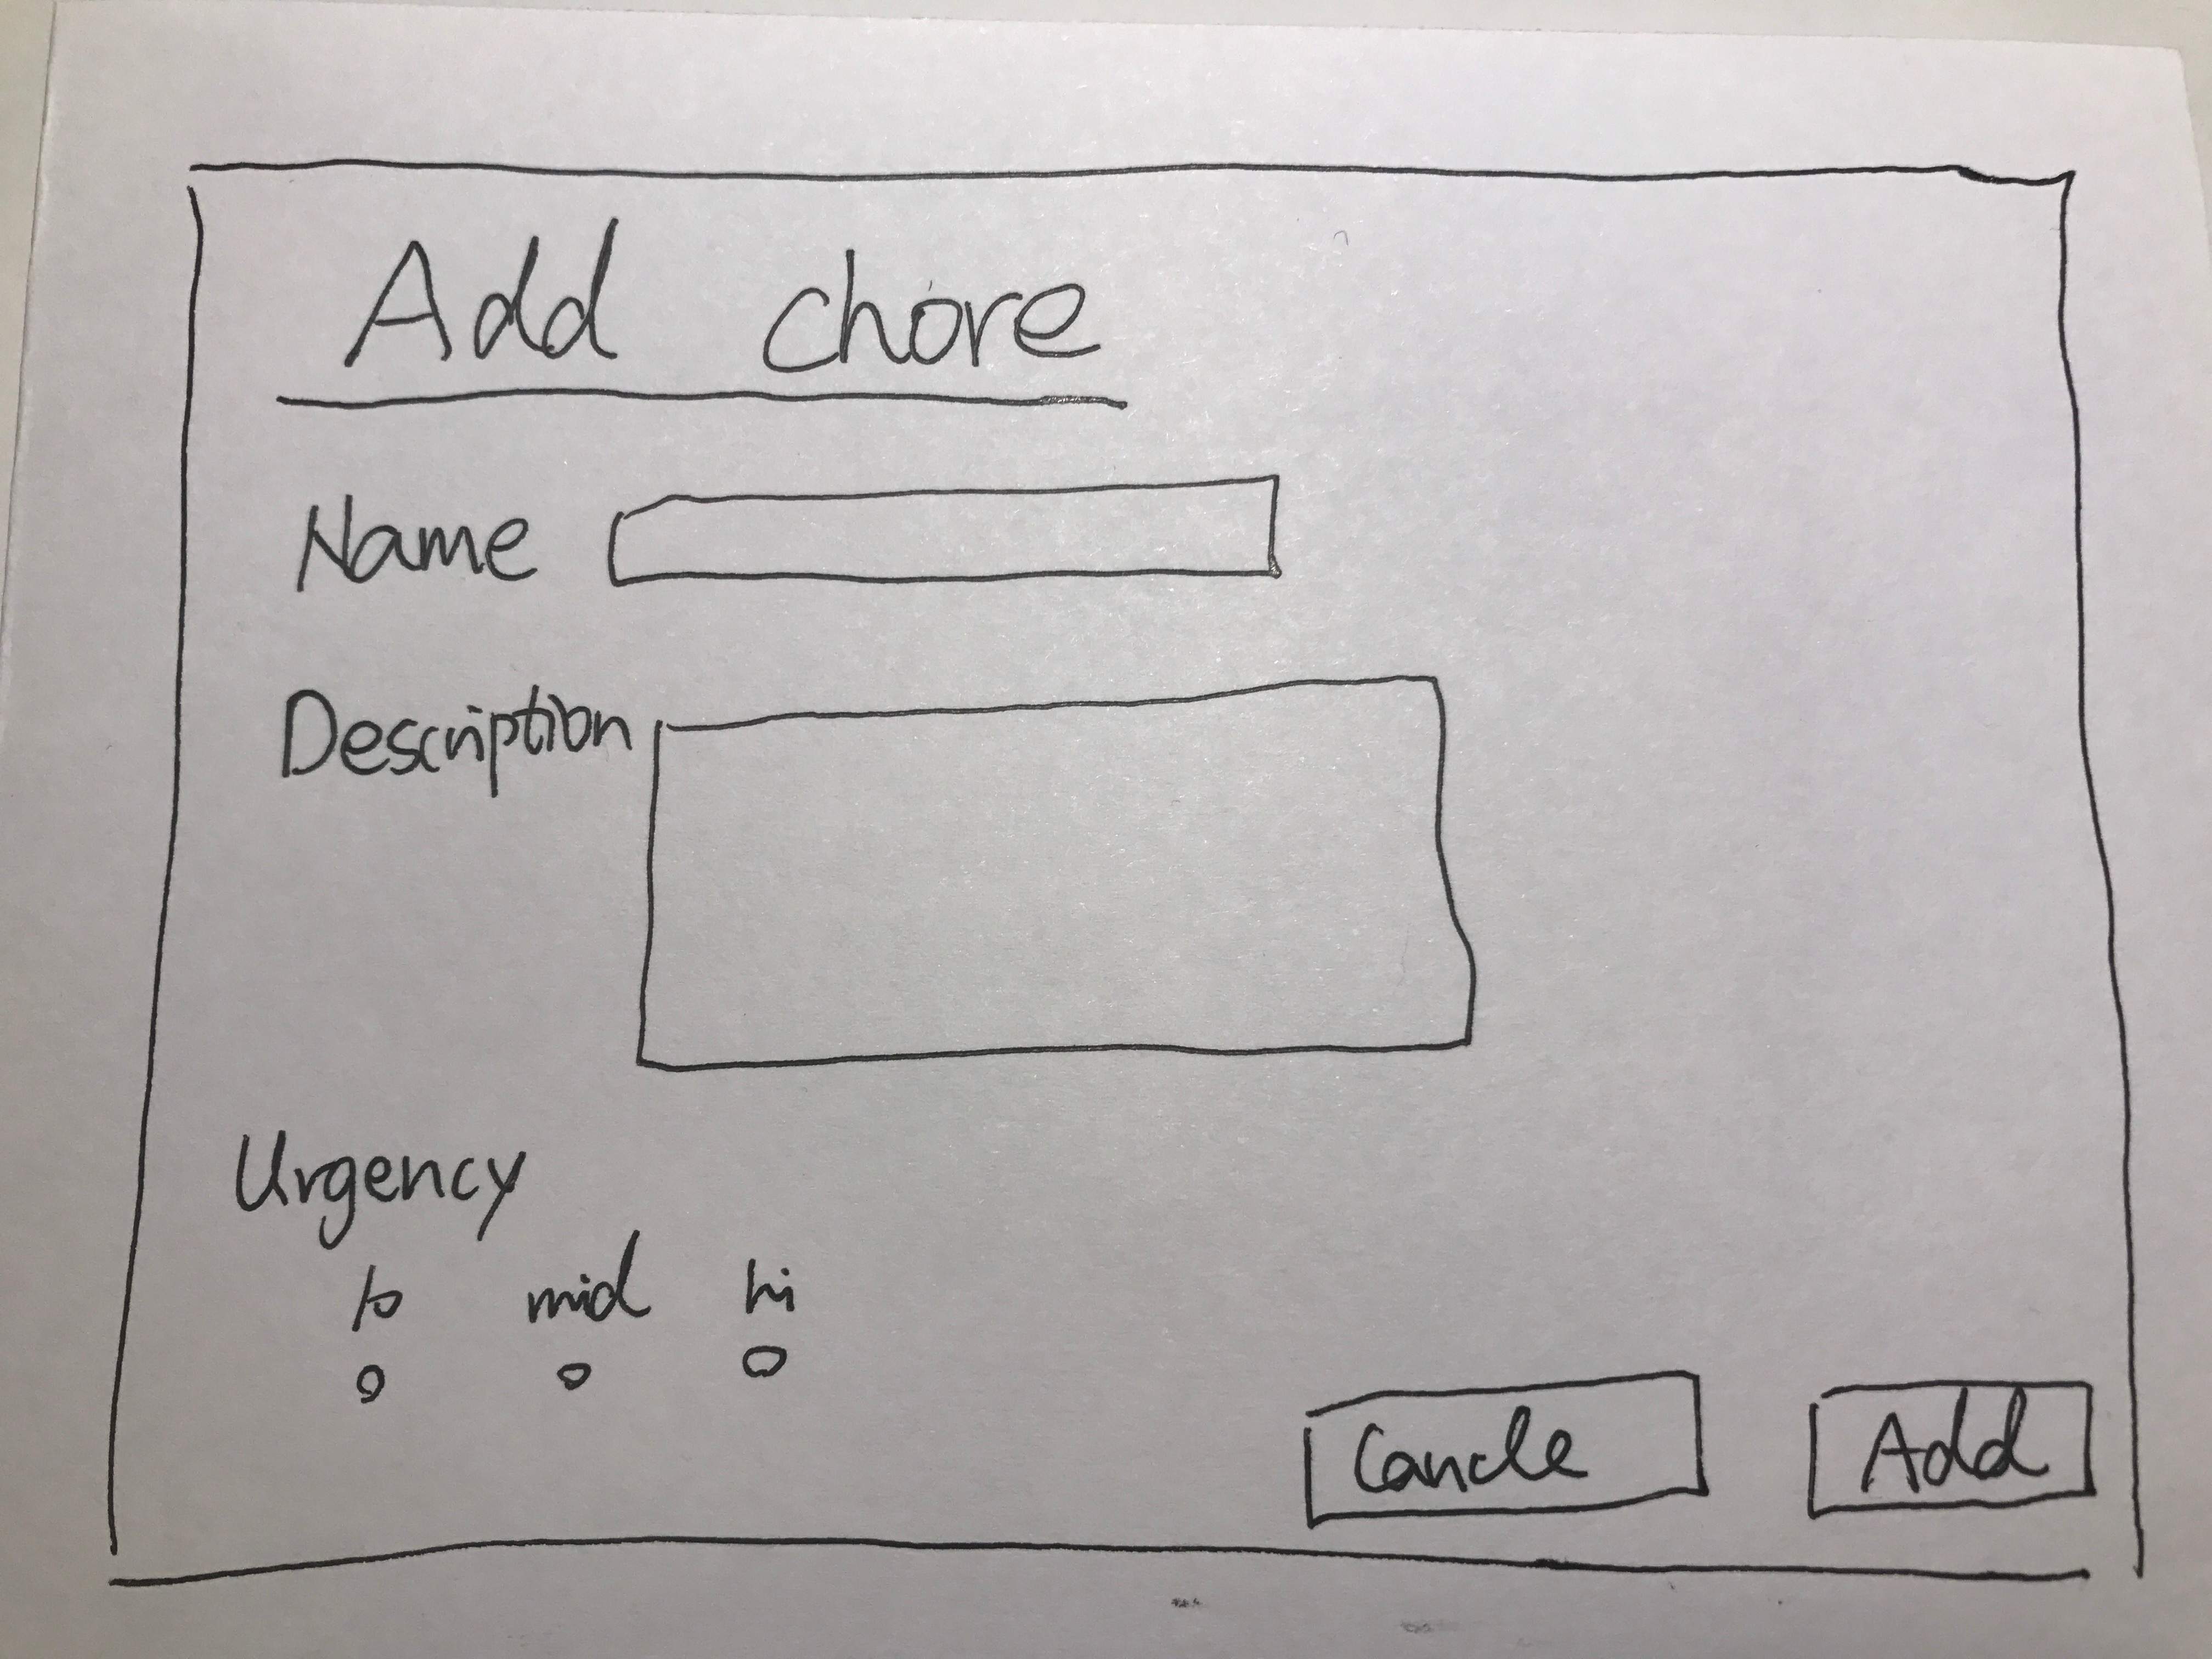 Add chore
Name
Description
Urgency
lo mid hi
Cancle Add